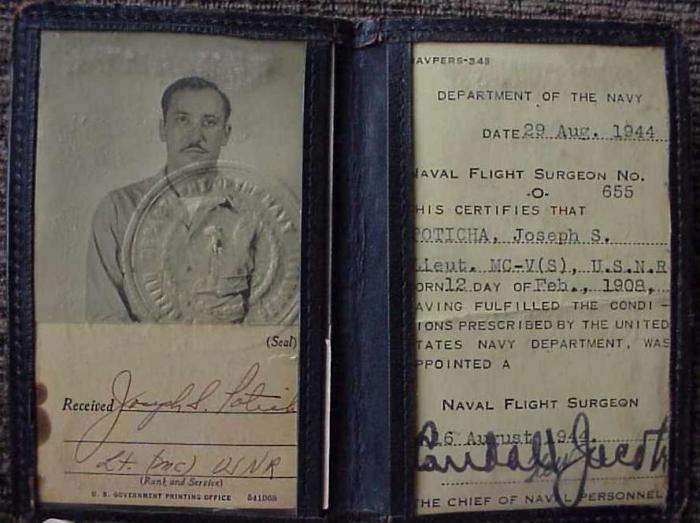 (Seal)
Received Joseph S. Potich
Lt. (MC) USNR
(Rank and Service)
U. S. GOVERNMENT PRINTING OFFICE
AVPERS-343
DEPARTMENT OF THE NAVY
DATE 29 Aug. 1944
NAVAL FLIGHT SURGEON No.
-O- 655
HIS CERTIFIES THAT
POTICHA, Joseph S.
Lieut. MC-V(S), U.S.N.R
ORN 12 DAY OF Feb., 1908,
AVING FULFILLED THE CONDI-
IONS PRESCRIBED BY THE UNITED
TATES NAVY DEPARTMENT, WAS
PPOINTED A
NAVAL FLIGHT SURGEON
16 August 1944.
Randall Jacobs
THE CHIEF OF NAVAL PERSONNEL